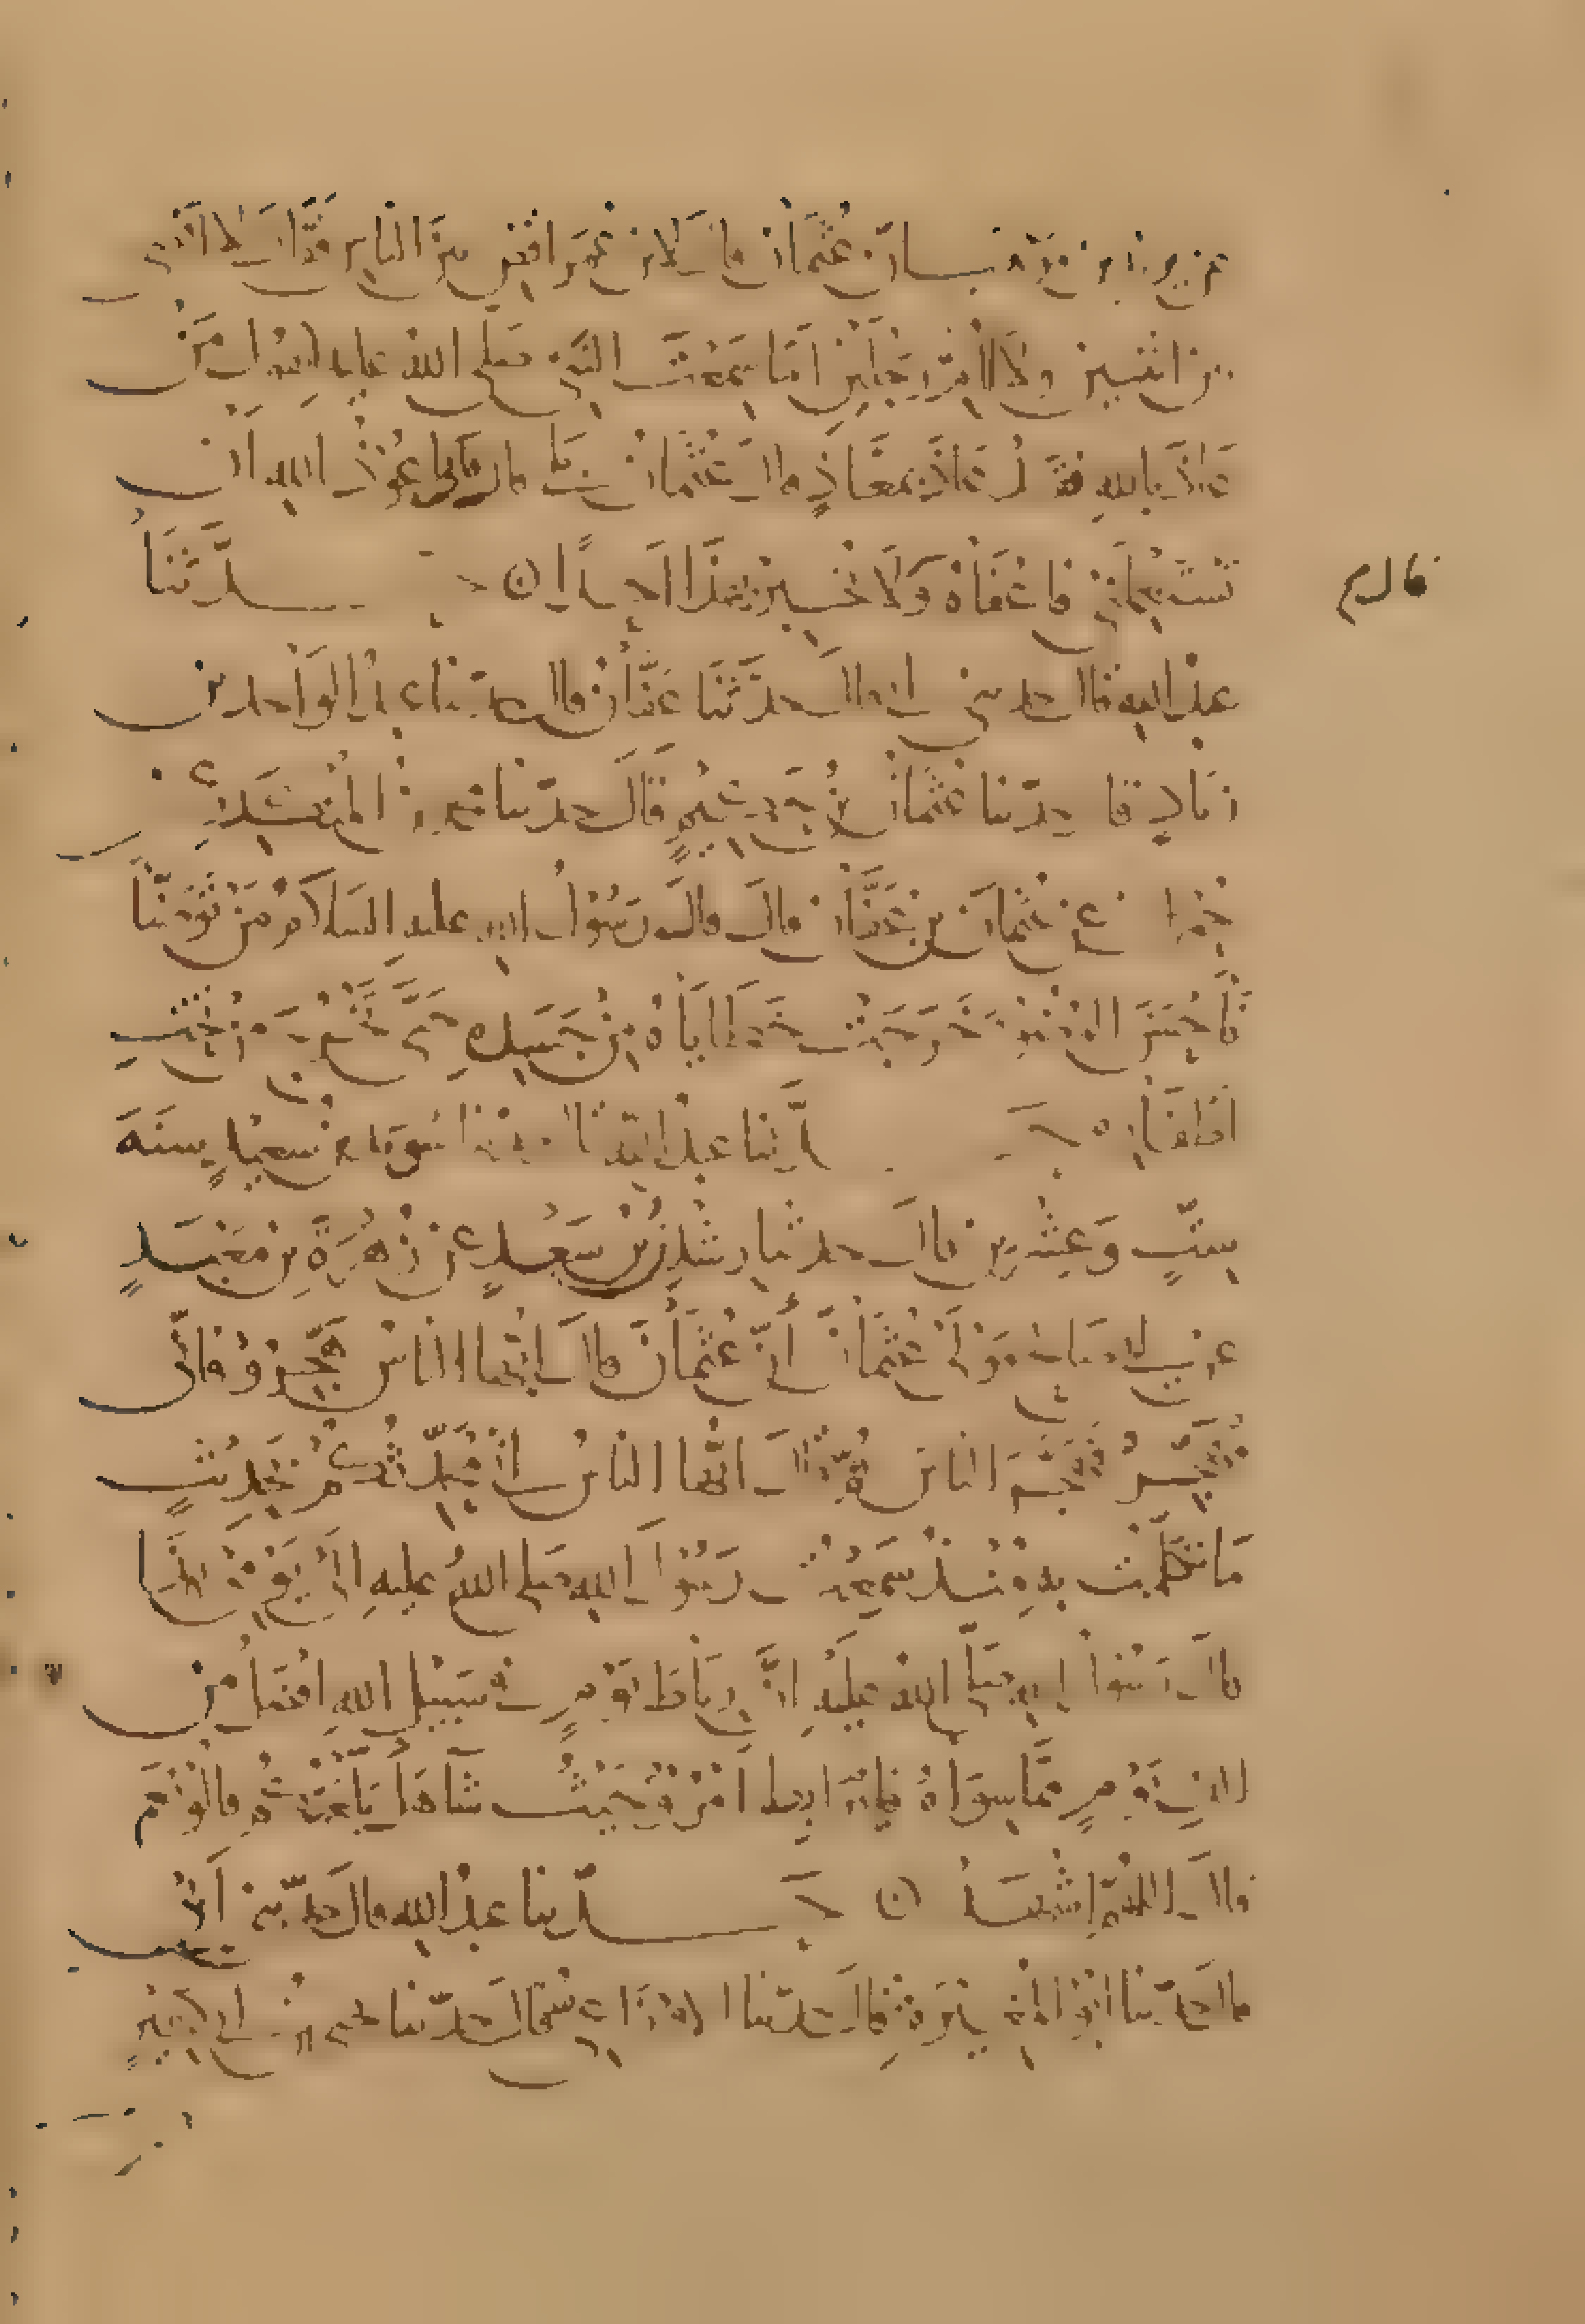 عن يزيد بن موهب ان عثمان قال لابن عمر اقض بين الناس فقال لا اقضي
بين اثنين ولا اؤم رجلين اما سمعت النبي صلى الله عليه يقول من
عاذ بالله فقد عاذ بمعاذ قال عثمان بلى قال فاني اعوذ بالله ان
تستعملني فاعفاه وقال لا تخبرن بهذا احدا ن حدثنا
قال
عبد الله قال حدثني ابي قال حدثنا عفان قال حدثنا عبد الواحد بن
زياد قال حدثنا عثمان بن حكيم قال حدثنا محمد بن المنكدر
عن حمران عن عثمان بن عفان قال قال رسول الله عليه السلام من توضا
فاحسن الوضوء خرجت خطاياه من جسده حتى تخرج من تحت
اظفاره حدثنا عبد الله ثنا سويد بن سعيد سنة
ست وعشرين قال حدثنا رشدين بن سعد عن زهرة بن معبد
عن ابي صالح مولى عثمان أن عثمان قال ايها الناس هجروا فاني
مهجر فهجر الناس ثم قال ايها الناس اني محدثكم بحديث
ما تكلمت به منذ سمعت رسول الله صلى الله عليه الى يومي هذا
قال رسول الله صلى الله عليه ان رباط يوم في سبيل الله افضل من
الف يوم مما سواه فليرابط امرؤ حيث شاء هل بلغتكم قالوا نعم
قال اللهم اشهد ن حدثنا عبد الله قال حدثني ابي
قال حدثنا ابو المغيرة قال حدثنا الاوزاعي قال حدثنا محمد بن